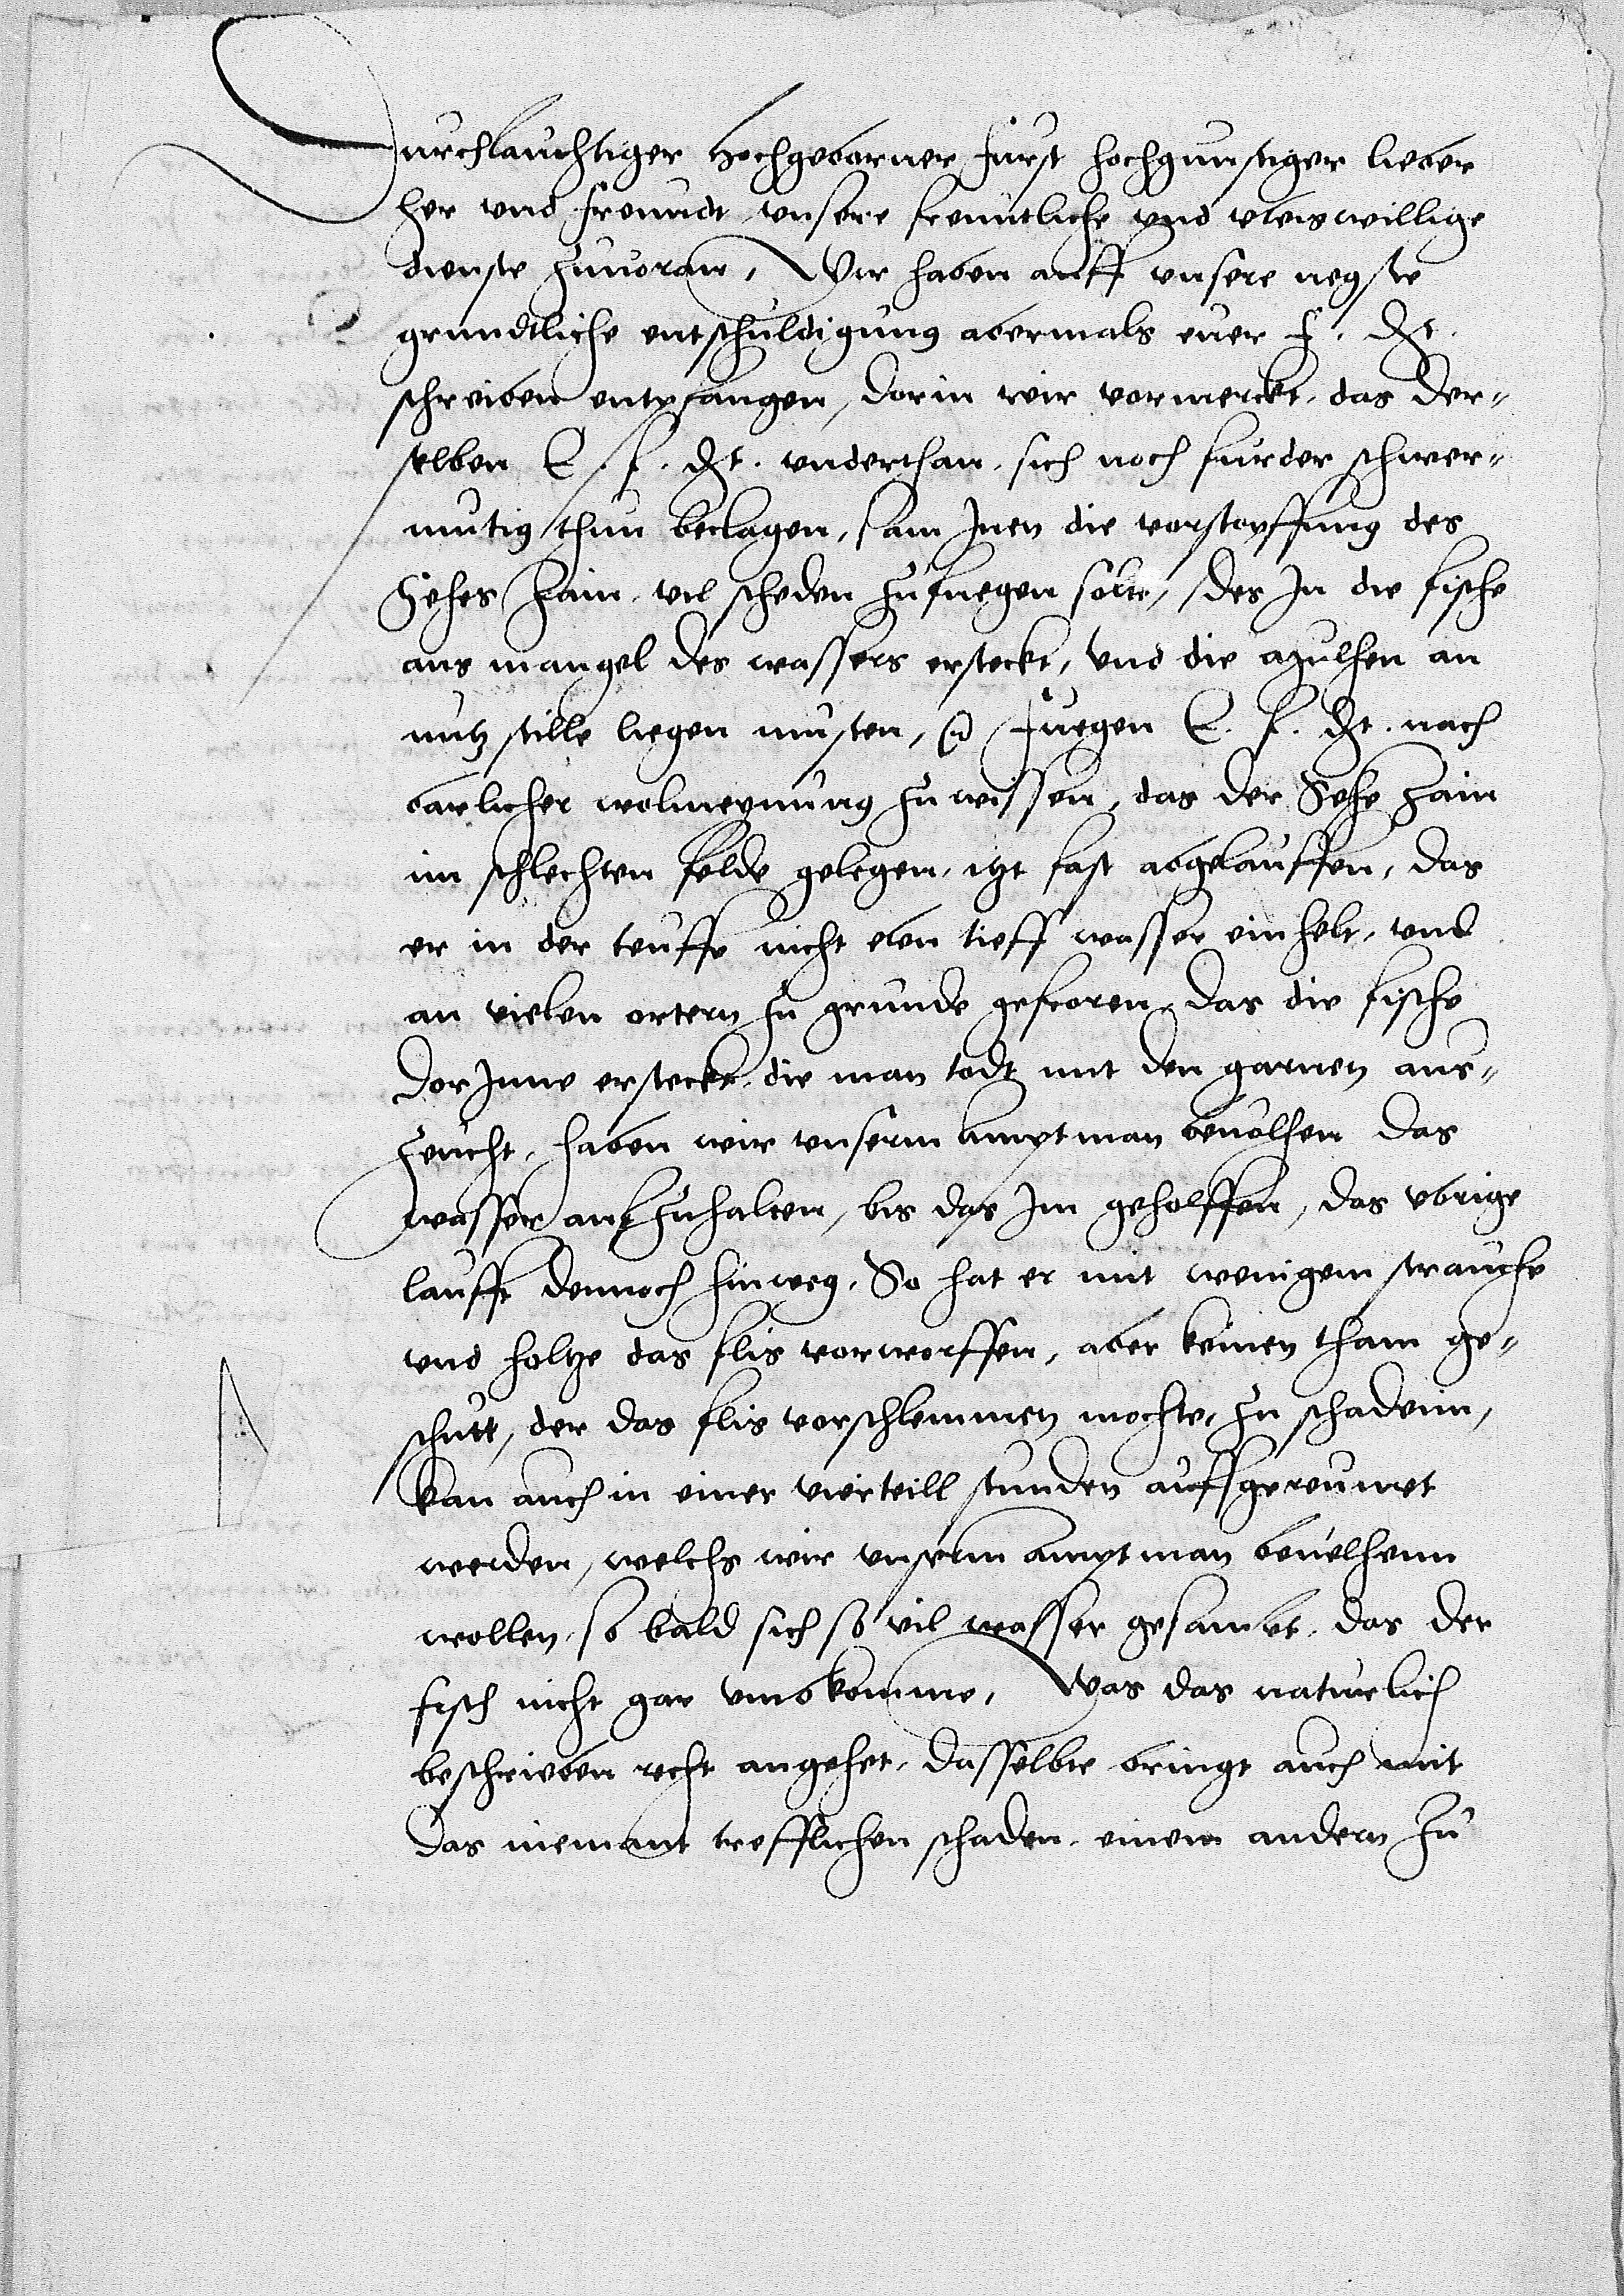 Durchlauchtiger hochgeborner furst hochgunstiger lieber
her vnd freundt vnsere freuntliche vnd vleiswillige
dienste zuuoran, Wir haben auff vnsere negste
gruntliche entschuldigung abermals euer f. dt.
schreiben entpfangen, dorin wir vormerckt, das der-
selben E. f. dt. vnderthan, sich noch furder schwer-
mutig thun beclagen, sam Inen die vorstopffung des
Sehes Zain, vil scheden zufuegen solte, des In die fische
aus mangel des wassers ersteckt, vnd die mulhen an
nutz stille liegen musten, Fuegen E. f. dt. nach
barlicher wolmeynung zuwissen, das der Sehe Zain
im schlechten felde gelegen, itzt fast abgelauffen, das
er in der teuffe nicht elen tieff wasser einhelt, vnd
an vielen ortern zu grunde gefroren, das die fische
dor Inne ersteckt, die man todt mit den garnen aus-
zeucht, haben wir vnserm amptman beuolhen das
wasser auffzuhalten, bis das Im geholffen, das vbrige
laufft dennoch hinweg, So hat er mit wenigem strauche
vnd holtze das flis vorworffen, aber keinen tham ge-
schutt, der das flis vorschlemmen mochte, zu schadenn,
kan auch in einer vierteill stunden auffgereumet
werden, welchs wir vnserm amptman beuelhenn
wollen, so bald sich so vil wasser gesamlet, das der
fisch nicht gar vmbkomme, Was das naturlich
beschrieben recht angehet, dasselbte bringt auch mit
das niemant trefflichen schaden, einem andern zu